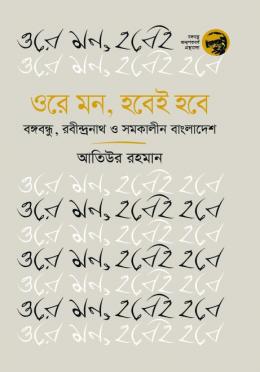 ওরে মন, হবেই
ওরে মন, হবেই হবে
ওরে মন, হবেই হবে
বঙ্গবন্ধু, রবীন্দ্রনাথ ও সমকালীন বাংলাদেশ
আতিউর রহমান
ওরে মন, হবেই হবে
ওরে মন, হবেই হবে
ওরে মন, হবেই হবে
ওরে মন, হবেই হবে
ওরে মন, হবেই হবে
ওরে মন, হবেই হবে
ওরে মন, হবেই হবে
ওরে মন, হবেই হবে